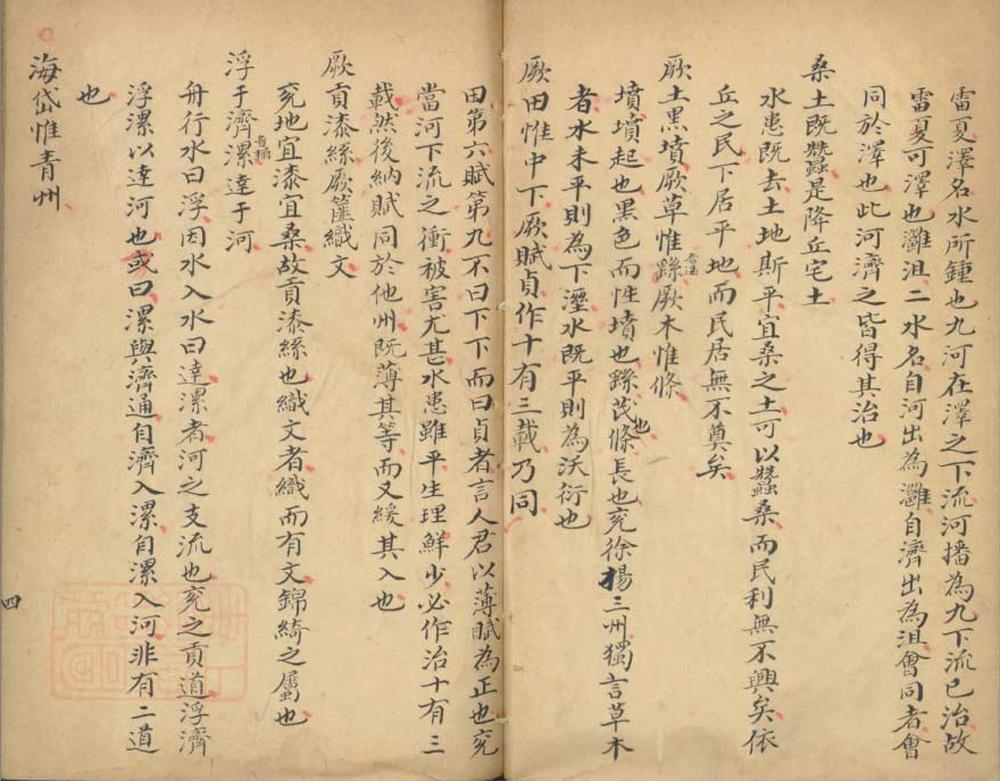 雷夏澤名水所鍾也九河在澤之下流河播為九下流已治故
雷夏可澤也灉沮二水名自河出為灉自濟出為沮會同者會
同於澤也此河濟之皆得其治也
桑土既蠶是降丘宅土
水患既去土地斯平宜桑之土可以蠶桑而民利無不興矣依
丘之民下居平地而民居無不奠矣
厥土黑墳厥草惟繇音遥厥木惟條
墳墳起也黑色而性墳也繇茂條長也也兖徐揚三州獨言草木
者水未平則為下溼水既平則為沃衍也
厥田惟中下厥賦貞作十有三載乃同
田第六賦第九不曰下下而曰貞者言人君以薄賦為正也兖
當河下流之衝被害尤甚水患雖平生理鮮少必作治十有三
載然後納賦同於他州既薄其等而又緩其入也
厥貢漆絲厥篚織文
兖地宜漆宜桑故貢漆絲也織文者織而有文錦綺之屬也
浮于濟漯達于河
舟行水曰浮因水入水曰達漯者河之支流也兖之貢道浮濟
浮漯以達河也或曰漯與濟通自濟入漯自漯入河非有二道
也
海岱惟青州
四